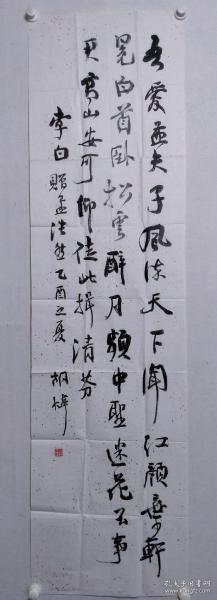 吾爱孟夫子风流天下闻红颜弃轩
冕白首卧松云醉月频中圣迷花不事
君高山安可仰徒此揖清芬
李白赠孟浩然乙酉之夏